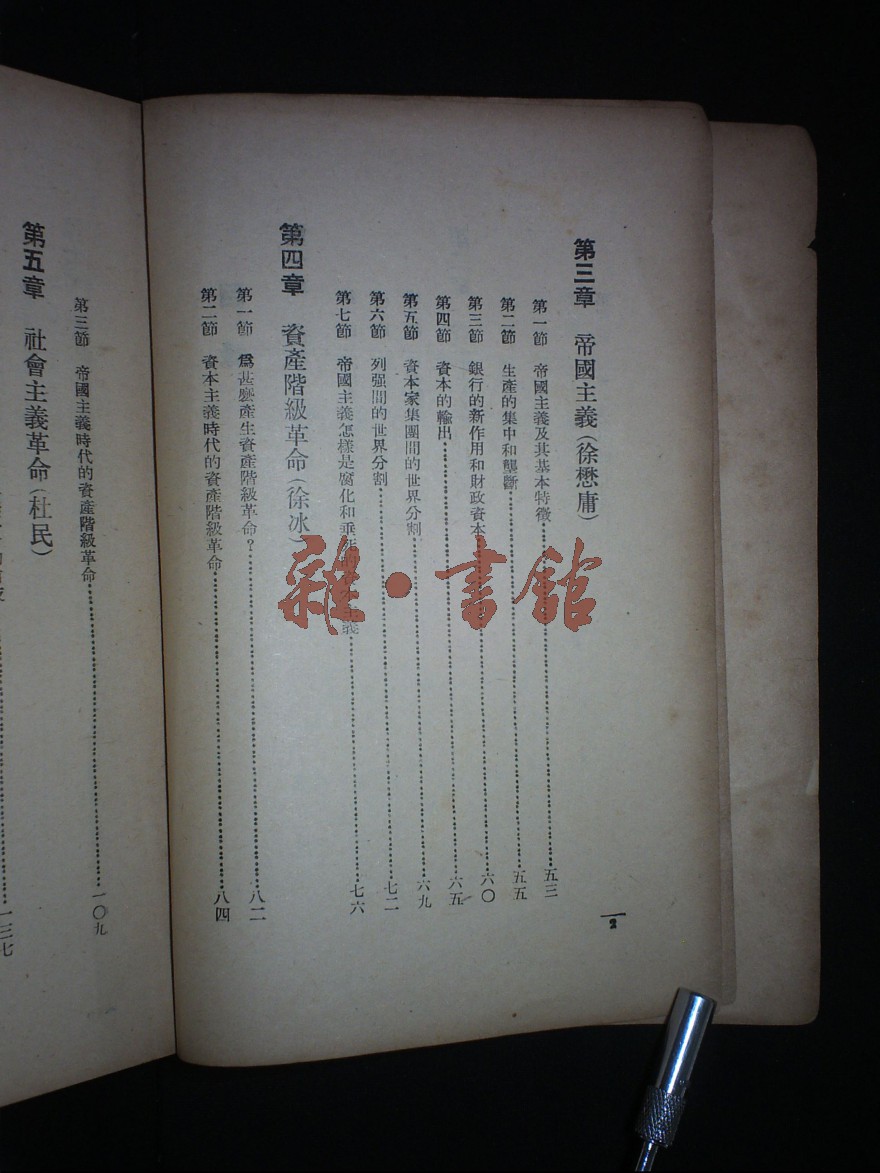 第三章 帝國主義(徐懋庸)
第一節 帝國主義及其基本特徵……五三
第二節 生產的集中和壟斷……五五
第三節 銀行的新作用和財政資本……六〇
第四節 資本的輸出……六五
第五節 資本家集團間的世界分割……六九
第六節 列强間的世界分割……七二
第七節 帝國主義怎樣是腐化和垂 主義……七六
第四章 資產階級革命(徐冰)
第一節 爲甚麽產生資產階級革命?……八二
第二節 資本主義時代的資產階級革命……八四
2
第三節 帝國主義時代的資產階級革命……一〇九
第五章 社會主義革命(杜民)
一三七
雜·書館